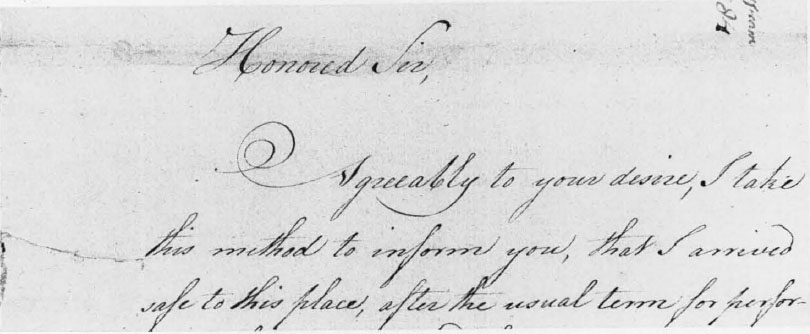 Honored Sir,
Agreeably to your desire, I take
this method to inform you, that I arrived
safe to this place, after the usual term for perfor-